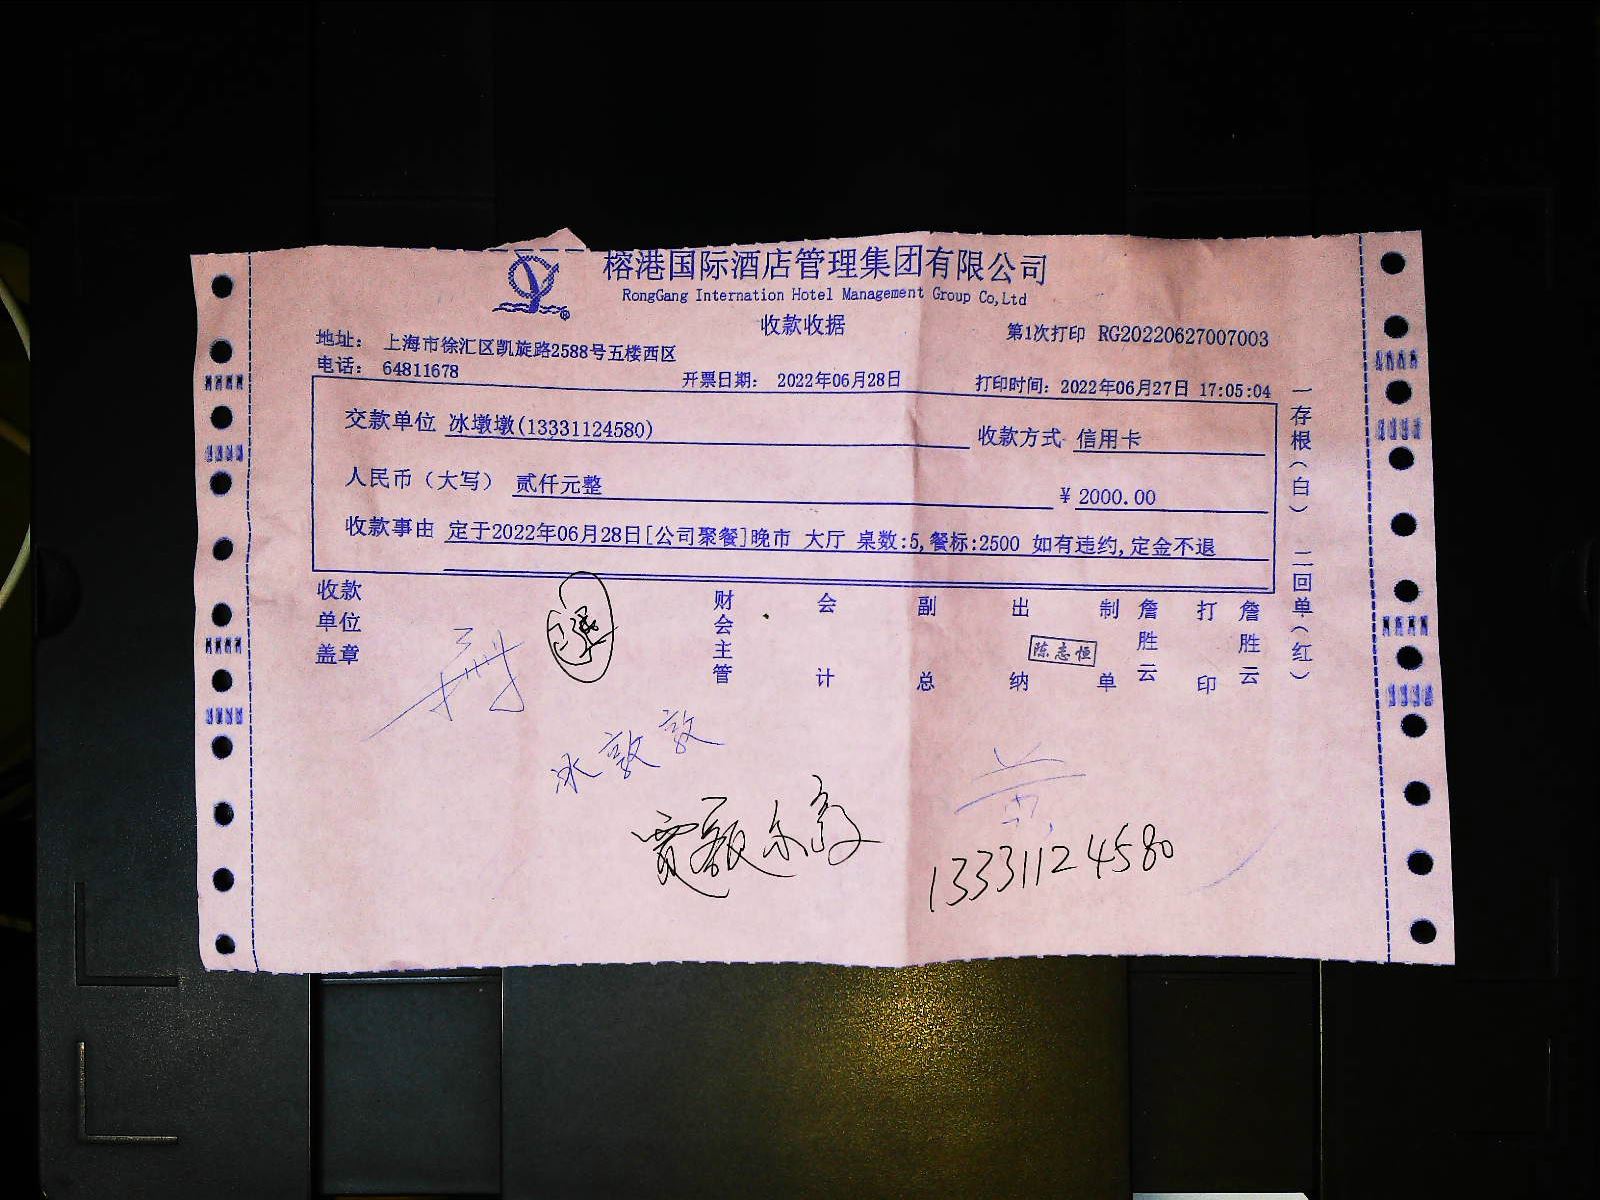 榕港国际酒店管理集团有限公司
RongGang Internation Hotel Management Group Co,Ltd
收款收据
第1次打印 RG20220627007003
地址： 上海市徐汇区凯旋路2588号五楼西区
电话： 64811678
开票日期： 2022年06月28日
打印时间：2022年06月27日 17:05:04
交款单位 冰墩墩(13331124580)
收款方式 信用卡
人民币（大写） 贰仟元整
¥ 2000.00
收款事由 定于2022年06月28日[公司聚餐]晚市 大厅 桌数:5,餐标:2500 如有违约,定金不退
一存根（白） 二回单（红）
收款单位盖章
财会主管
会计
副总
出纳
陈志恒
制单
詹胜云
打印
詹胜云
冰敦敦
13331124580